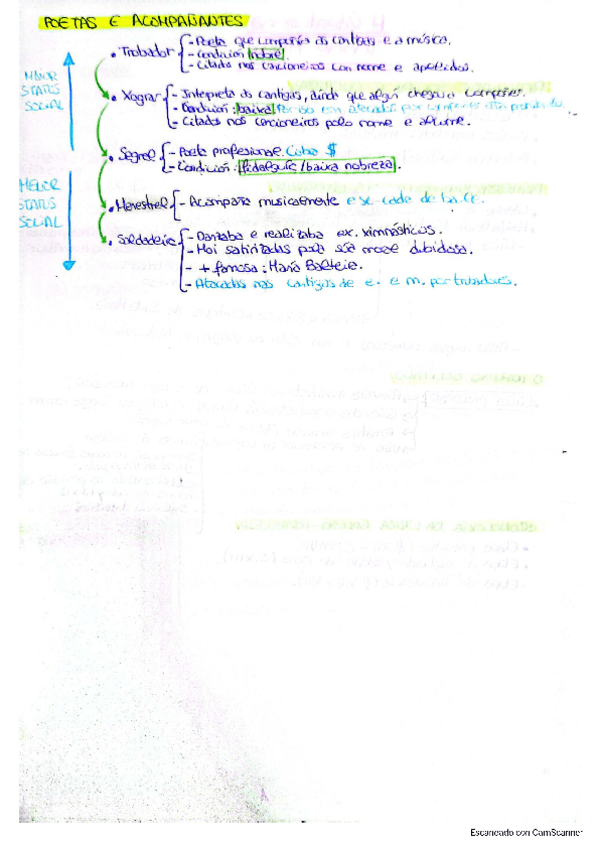 POETAS E ACOMPAÑANTES
MAIOR STATUS SOCIAL
• Trobador
- Poeta que compoñía as cantigas e a música.
- Condición: nobre
- Citados nos cancioneiros con nome e apelidos.
• Xograr
- Interpreta as cantigas, aínda que algún chegou a compoñer.
- Condición: baixa
- Citados nos cancioneiros polo nome e alcume.
• Segrel
- Poeta profesional. Cobra $
- Condición: fidalguía/baixa nobreza.
MENOR STATUS SOCIAL
• Menestrel
- Acompaña musicalmente e
• Soldadeira
- Danzaba e realizaba ex. ximnásticos.
- Moi satirizadas pola súa moral dubidosa.
- + famosa: María Balteira.
- Atacadas nas cantigas de e. e m. por trobadores.
Escaneado con CamScanner